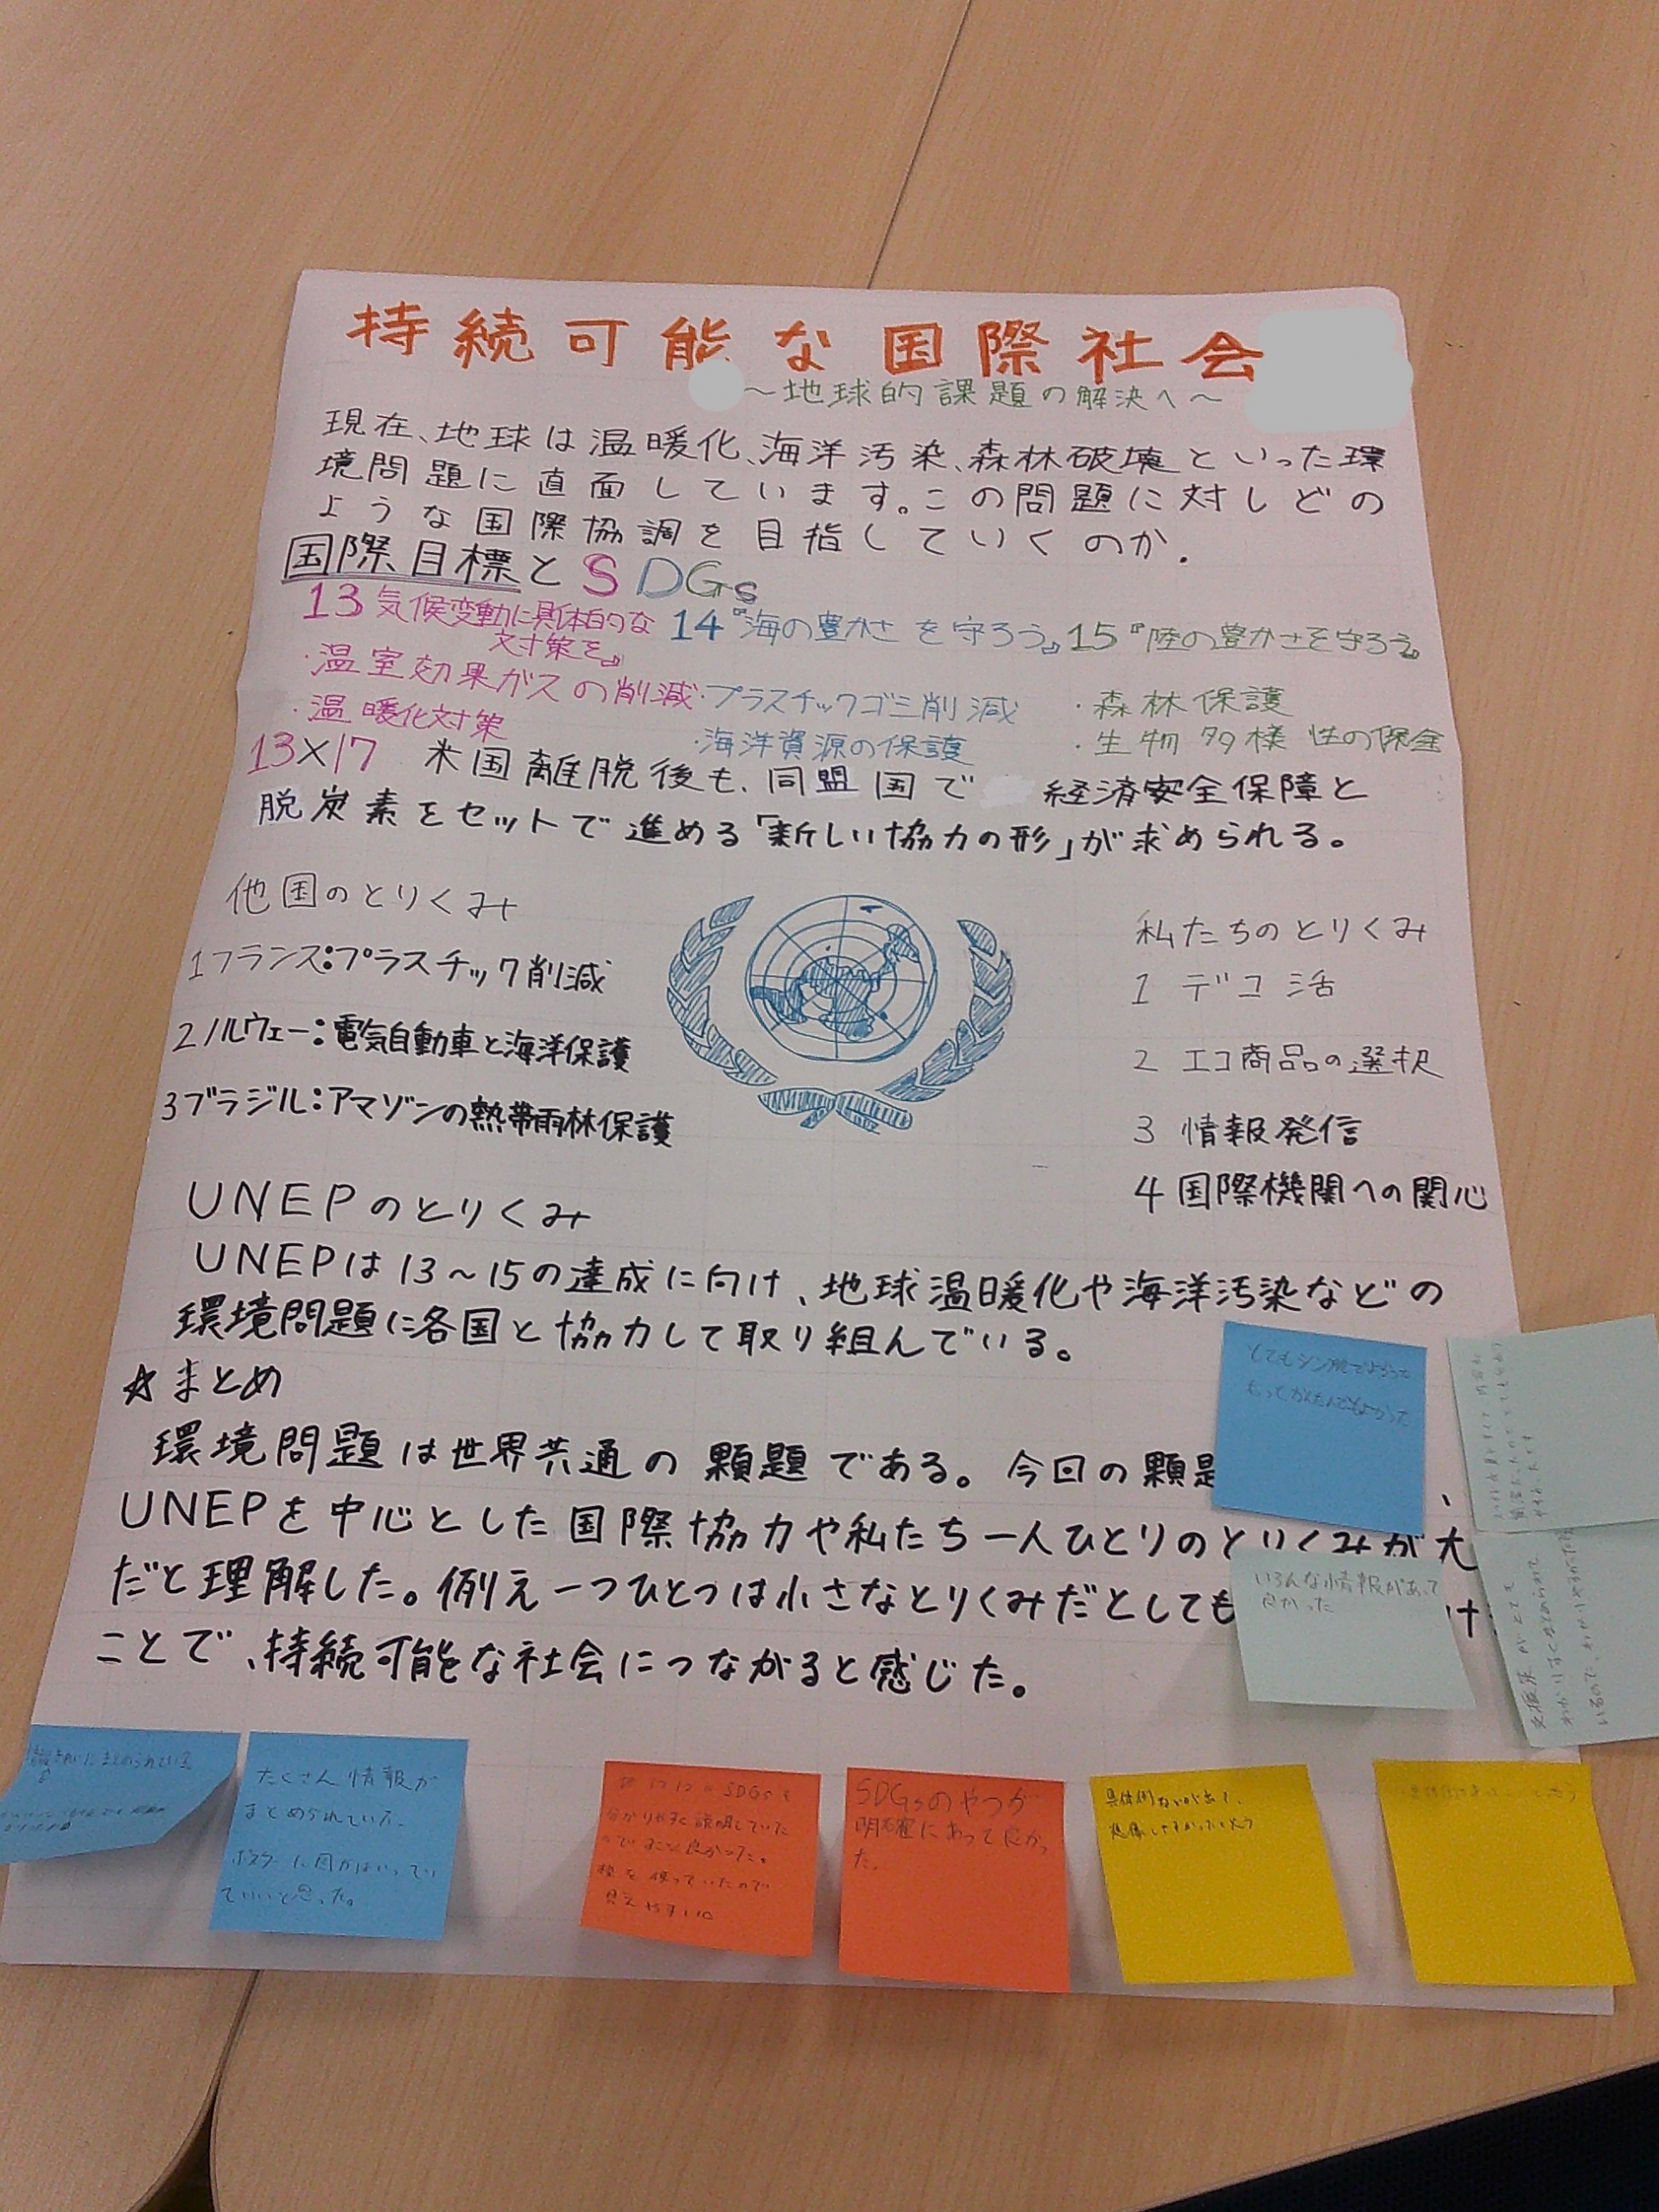 持続可能な国際社会
～地球的課題の解決へ～
現在、地球は温暖化、海洋汚染、森林破壊といった環
境問題に直面しています。この問題に対しどの
ような国際協調を目指していくのか.
国際目標とSDGs
13 気候変動に具体的な
対策を』
・温室効果ガスの削減
・温暖化対策
14『海の豊かさを守ろう』
・プラスチックゴミ削減
・海洋資源の保護
15『陸の豊かさを守ろう』
・森林保護
・生物多様性の保全
13×17 米国離脱後も、同盟国で 経済安全保障と
脱炭素をセットで進める「新しい協力の形」が求められる。
他国のとりくみ
1フランス:プラスチック削減
2ノルウェー:電気自動車と海洋保護
3ブラジル:アマゾンの熱帯雨林保護
私たちのとりくみ
1 デコ活
2 エコ商品の選択
3 情報発信
4 国際機関への関心
UNEPのとりくみ
UNEPは13～15の達成に向け、地球温暖化や海洋汚染などの
環境問題に各国と協力して取り組んでいる。
☆まとめ
環境問題は世界共通の題である。今回の
UNEPを中心とした国際協力や私たち一人ひとりのとりくみが大
だと理解した。例え一つひとつは小さなとりくみだとしても け
ことで、持続可能な社会につながると感じた。
とてもシンプルでよかった
もっとかんたんでもよかった
いろんな情報があって
良かった
わかりすくまとめられて
いるので、わかりやすかったです
まとめられている
たくさん情報が
まとめられていた。
ポスターに図がはいってい
ていいと思った。
SDGsを
分かりやすく説明していた
のですごく良かった。
枠を使っていたので
見えやすい。
SDGsのやつが
明確にあって良かっ
た。
具体例などが出て、
想像しやすかったと思う